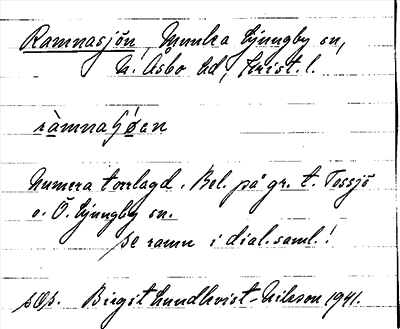 Ramnasjön, Munka Ljungby sn,
N. Åsbo hd, Krist. l.
ràmnaʃǿən
Numera torrlagd. Bel. på gr. t. Tossjö
o. Ö. Ljungby sn.
se ramn i dial. saml.!
Birgit Lundkvist-Nilsson 1941.